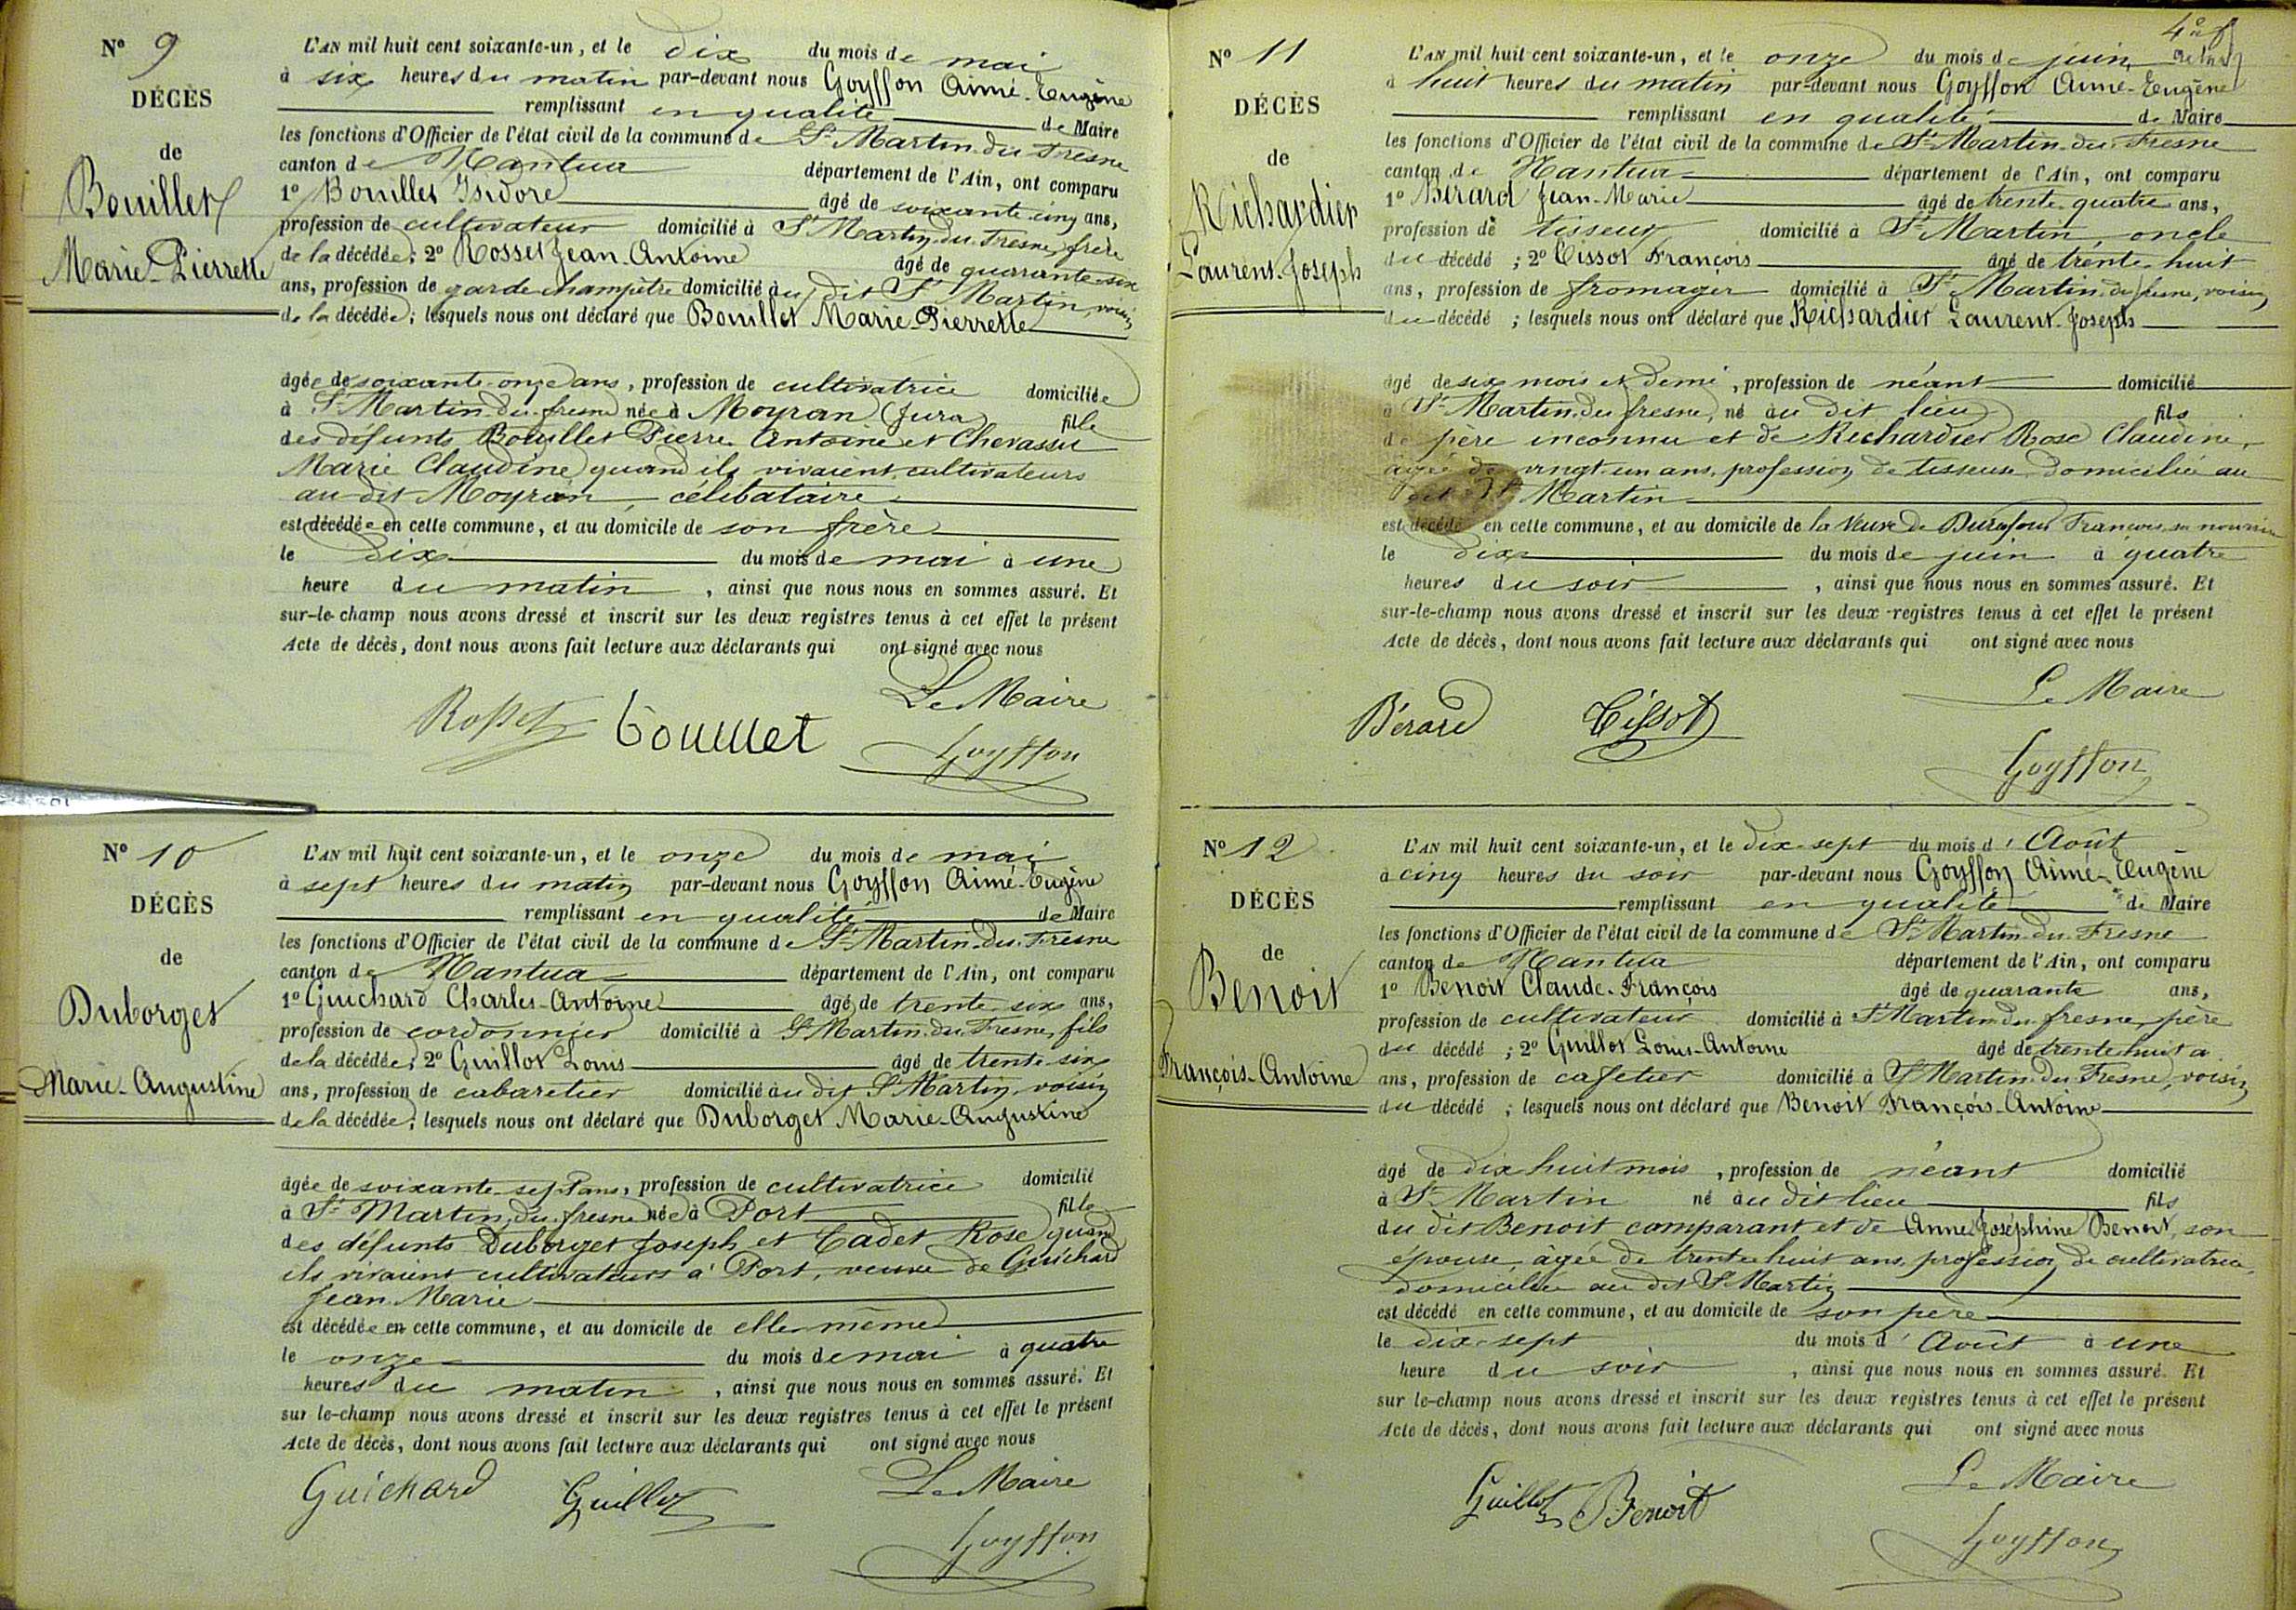 Nº 9
DÉCÈS
de
Bouillet
Marie-Pierrette
L'AN mil huit cent soixante-un, et le dix du mois de mai
à six heures du matin par-devant nous Goyffon Aimé-Eugène
remplissant en qualité de Maire
les fonctions d'Officier de l'état civil de la commune de St Martin-du-Fresne
canton de Nantua département de l'Ain, ont comparu
1º Bouillet Isidore âgé de soixante-cinq ans,
profession de cultivateur domicilié à St Martin-du-Fresne, frère
de la décédée; 2º Rosset Jean-Antoine âgé de quarante-six
ans, profession de garde champêtre domicilié au dit St Martin, voisin
de la décédée; lesquels nous ont déclaré que Bouillet Marie-Pierrette
âgée de soixante-onze ans, profession de cultivatrice domiciliée
à St Martin-du-fresne née à Moyran (Jura) fille
des défunts Bouillet Pierre-Antoine et Chevassu
Marie Claudine quand ils vivaient cultivateurs
au dit Moyran, célibataire
est décédée en cette commune, et au domicile de son frère
le dix du mois de mai à une
heure du matin, ainsi que nous nous en sommes assuré. Et
sur-le-champ nous avons dressé et inscrit sur les deux registres tenus à cet effet le présent
Acte de décès, dont nous avons fait lecture aux déclarants qui ont signé avec nous
Le Maire
Rosset Bouillet
Goyffon
Nº 10
DÉCÈS
de
Duborget
Marie-Augustine
L'AN mil huit cent soixante-un, et le onze du mois de mai
à sept heures du matin par-devant nous Goyffon Aimé-Eugène
remplissant en qualité de Maire
les fonctions d'Officier de l'état civil de la commune de St Martin-du-Fresne
canton de Nantua département de l'Ain, ont comparu
1º Guichard Charles-Antoine âgé de trente-six ans,
profession de cordonnier domicilié à St Martin-du-Fresne, fils
de la décédée; 2º Guillot Louis âgé de trente-six
ans, profession de cabaretier domicilié au dit St Martin, voisin
de la décédée; lesquels nous ont déclaré que Duborget Marie-Augustine
âgée de soixante-sept ans, profession de cultivatrice domicilié
à St Martin-du-fresne née à Port fille
des défunts Duborget Joseph et Cadet Rose quand
ils vivaient cultivateurs à Port, veuve de Guichard
Jean-Marie
est décédée en cette commune, et au domicile de elle-même
le onze du mois de mai à quatre
heures du matin, ainsi que nous nous en sommes assuré. Et
sur le-champ nous avons dressé et inscrit sur les deux registres tenus à cet effet le présent
Acte de décès, dont nous avons fait lecture aux déclarants qui ont signé avec nous
Guichard Guillot Le Maire
Goyffon
4e
Nº 11
DÉCÈS
de
Richardier
Laurent-Joseph
L'AN mil huit cent soixante-un, et le onze du mois de juin
à huit heures du matin par-devant nous Goyffon Aimé-Eugène
remplissant en qualité de Maire
les fonctions d'Officier de l'état civil de la commune de St Martin-du-Fresne
canton de Nantua département de l'Ain, ont comparu
1º Bérard Jean-Marie âgé de trente-quatre ans,
profession de tisseur domicilié à St Martin, oncle
du décédé; 2º Tissot François âgé de trente-huit
ans, profession de fromager domicilié à St Martin-du-fresne, voisin
du décédé; lesquels nous ont déclaré que Richardier Laurent-Joseph
âgé de six mois et demi, profession de néant domicilié
à St Martin-du-fresne, né au dit lieu fils
de père inconnu et de Richardier Rose Claudine,
âgée de vingt-un ans, profession de tisseuse domiciliée au
dit St Martin
est décédé en cette commune, et au domicile de la Veuve de Durafour François, sa nourrice
le dix du mois de juin à quatre
heures du soir, ainsi que nous nous en sommes assuré. Et
sur-le-champ nous avons dressé et inscrit sur les deux registres tenus à cet effet le présent
Acte de décès, dont nous avons fait lecture aux déclarants qui ont signé avec nous
Le Maire
Bérard Tissot
Goyffon
Nº 12
DÉCÈS
de
Benoit
François-Antoine
L'AN mil huit cent soixante-un, et le dix-sept du mois d'Août
à cinq heures du soir par-devant nous Goyffon Aimé-Eugène
remplissant en qualité de Maire
les fonctions d'Officier de l'état civil de la commune de St Martin-du-Fresne
canton de Nantua département de l'Ain, ont comparu
1º Benoit Claude-François âgé de quarante ans,
profession de cultivateur domicilié à St Martin-du-fresne, père
du décédé; 2º Guillot Louis-Antoine âgé de trente huit a
ans, profession de cafetier domicilié à St Martin-du-Fresne, voisin
du décédé; lesquels nous ont déclaré que Benoit François-Antoine
âgé de dix huit mois, profession de néant domicilié
à St Martin né au dit lieu fils
du dit Benoit comparant et de Anne Joséphine Benoit, son
épouse, âgée de trente huit ans, profession de cultivatrice
domiciliée au dit St Martin
est décédé en cette commune, et au domicile de son père
le dix-sept du mois d'Août à une
heure du soir, ainsi que nous nous en sommes assuré. Et
sur le-champ nous avons dressé et inscrit sur les deux registres tenus à cet effet le présent
Acte de décès, dont nous avons fait lecture aux déclarants qui ont signé avec nous
Le Maire
Guillot Benoit
Goyffon